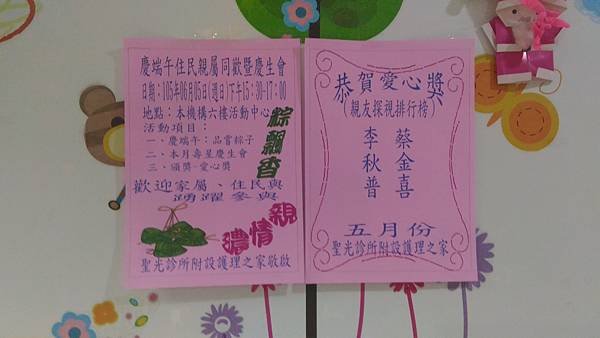 慶端午住民親屬同歡暨慶生會
日期：105年06月05日(週日)下午15:30-17:00
地點：本機構六樓活動中心
活動項目：
一、慶端午：品嘗粽子
二、本月壽星慶生會
三、頒獎-愛心獎
歡迎家屬、住民與
踴躍參與
粽飄香
濃情親
聖光診所附設護理之家敬啟
恭賀愛心獎
(親友探視排行榜)
蔡金喜
李秋普
五月份
聖光診所附設護理之家